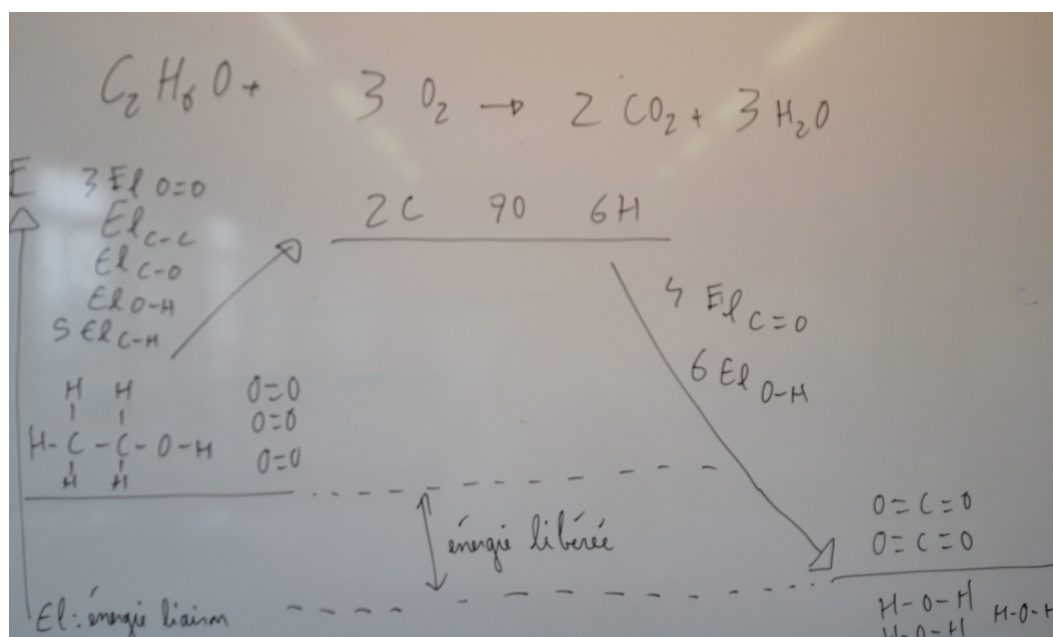 C₂H₆O + 3 O₂ → 2 CO₂ + 3 H₂O
E
3 El O=O
El C-C
El C-O
El O-H
5 El C-H
2C 7O 6H
4 El C=O
6 El O-H
H H
H-C-C-O-H
H H
O=O
O=O
O=O
énergie libérée
O=C=O
O=C=O
El : énergie liaison
H-O-H H-O-H
H-O-H